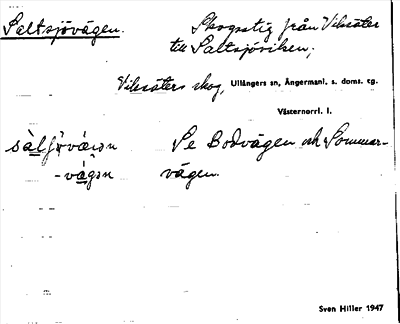 Saltsjövägen.
Skogsstig från Vilsäter
till Saltsjöviken;
Vilsäters skog, Ullångers sn, Ångermanl. s. doms. tg.
Västernorrl. l.
Se Bodvägen och Sommar-
vägen.
Sven Hiller 1947